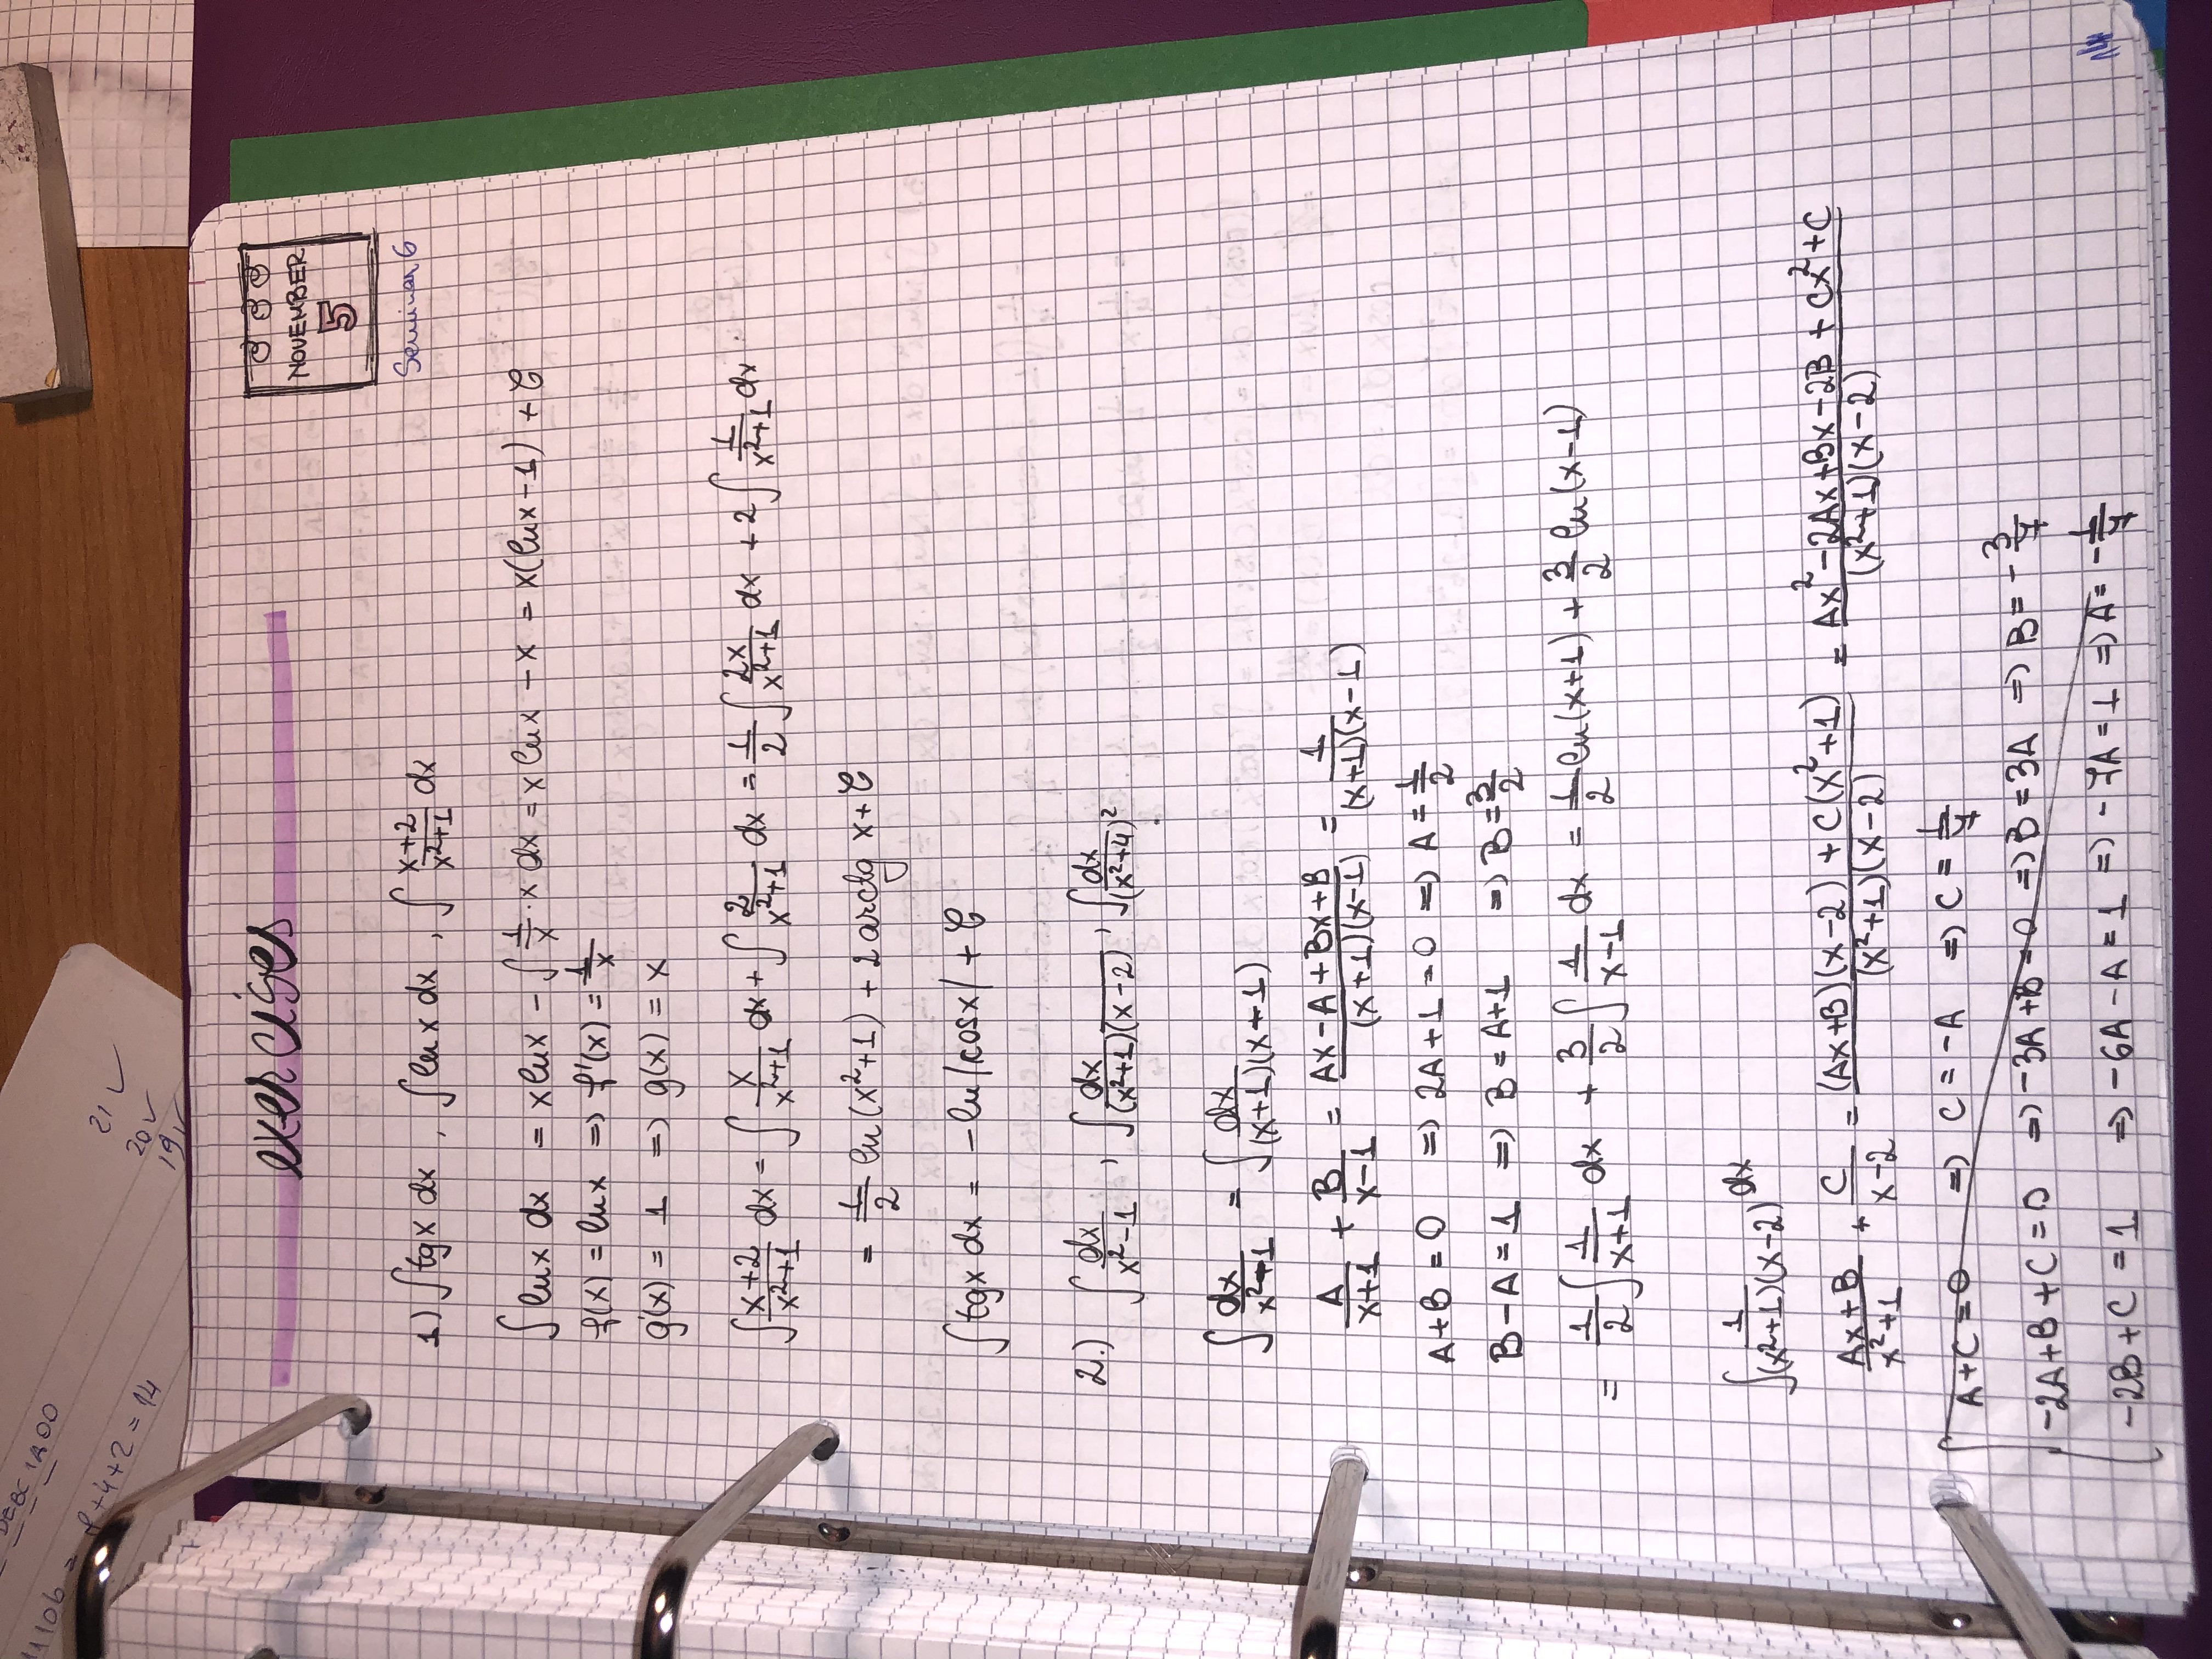 DEBC 1A00
1110b = 8+4+2 = 14
21 ✓
20 ✓
19 ✓
exercises
NOVEMBER
5
Seminar 6
1) ∫tgx dx , ∫ln x dx , ∫ (x+2)/(x²+1) dx
∫lnx dx = xlnx - ∫ 1/x · x dx = x lnx - x = x(lnx - 1) + C
f(x) = lnx => f'(x) = 1/x
g'(x) = 1 => g(x) = x
∫ (x+2)/(x²+1) dx = ∫ x/(x²+1) dx + ∫ 2/(x²+1) dx = 1/2 ∫ 2x/(x²+1) dx + 2 ∫ 1/(x²+1) dx
= 1/2 ln(x²+1) + 2 arctg x + C
∫tgx dx = -ln|cosx| + C
2.) ∫ dx/(x²-1) , ∫ dx/((x²+1)(x-2)) , ∫ dx/(x²+4)²
∫ dx/(x²-1) = ∫ dx/((x+1)(x-1))
A/(x+1) + B/(x-1) = (Ax-A+Bx+B)/((x+1)(x-1)) = 1/((x+1)(x-1))
A+B = 0 => 2A+1 = 0 => A = 1/2
B-A = 1 => B = A+1 => B = 3/2
= 1/2 ∫ 1/(x+1) dx + 3/2 ∫ 1/(x-1) dx = 1/2 ln(x+1) + 3/2 ln(x-1)
∫ 1/((x²+1)(x-2)) dx
(Ax+B)/(x²+1) + C/(x-2) = ((Ax+B)(x-2) + C(x²+1))/((x²+1)(x-2)) = (Ax²-2Ax+Bx-2B+Cx²+C)/((x²+1)(x-2))
A+C = 0 => C = -A => C = 1/7
-2A+B+C = 0 => -3A+B = 0 => B = 3A => B = -3/7
-2B+C = 1 => -6A-A = 1 => -7A = 1 => A = -1/7